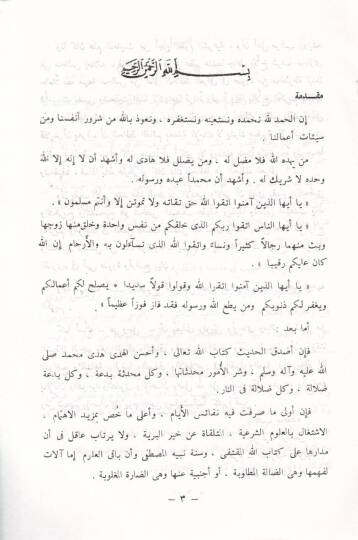 بسم الله الرحمن الرحيم
مقدمة
إن الحمد لله نحمده ونستعينه ونستغفره ، ونعوذ بالله من شرور أنفسنا ومن
سيئات أعمالنا .
من يهده الله فلا مضل له ، ومن يضلل فلا هادى له وأشهد أن لا إله إلا الله
وحده لا شريك له . وأشهد أن محمداً عبده ورسوله .
« يا أيها الذين آمنوا اتقوا الله حق تقاته ولا تموتن إلا وأنتم مسلمون » .
« يا أيها الناس اتقوا ربكم الذى خلقكم من نفس واحدة وخلق منها زوجها
وبث منهما رجالاً كثيراً ونساء واتقوا الله الذى تساءلون به والأرحام إن الله
كان عليكم رقيبا » .
« يا أيها الذين آمنوا اتقوا الله وقولوا قولاً سديدا * يصلح لكم أعمالكم
ويغفر لكم ذنوبكم ومن يطع الله ورسوله فقد فاز فوزاً عظيماً »
أما بعد :
فإن أصدق الحديث كتاب الله تعالى ، وأحسن الهدى هدى محمد صلى
الله عليه وآله وسلم ، وشر الأمور محدثاتها ، وكل محدثة بدعة ، وكل بدعة
ضلالة ، وكل ضلالة فى النار .
فإن أولى ما صرفت فيه نفائس الأيام ، وأعلى ما خُص بمزيد الاهتمام ،
الاشتغال بالعلوم الشرعية ، المتلقاة عن خير البرية ، ولا يرتاب عاقل فى أن
مدارها على كتاب الله المقتفى ، وسنة نبيه المصطفى وأن باقى العلوم إما آلات
لفهمها وهى الضالة المطلوبة ، أو أجنبية عنها وهى الضارة المغلوبة .
— ٣ —